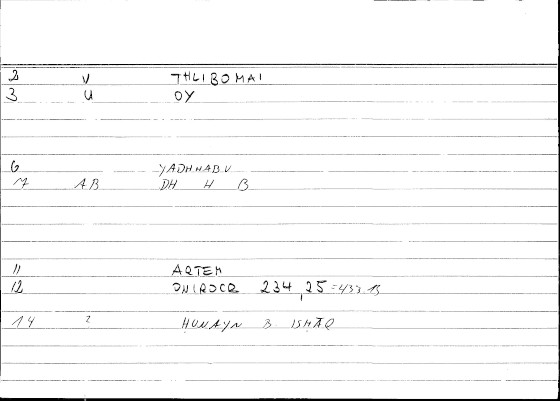 2 V THLIBOMAI
3 U OY
6 YADHHABU
7 AB DH H B
11 ARTEM
12 ONIROCR 234,25=433 13
14 ? HUNAYN B ISHĀQ